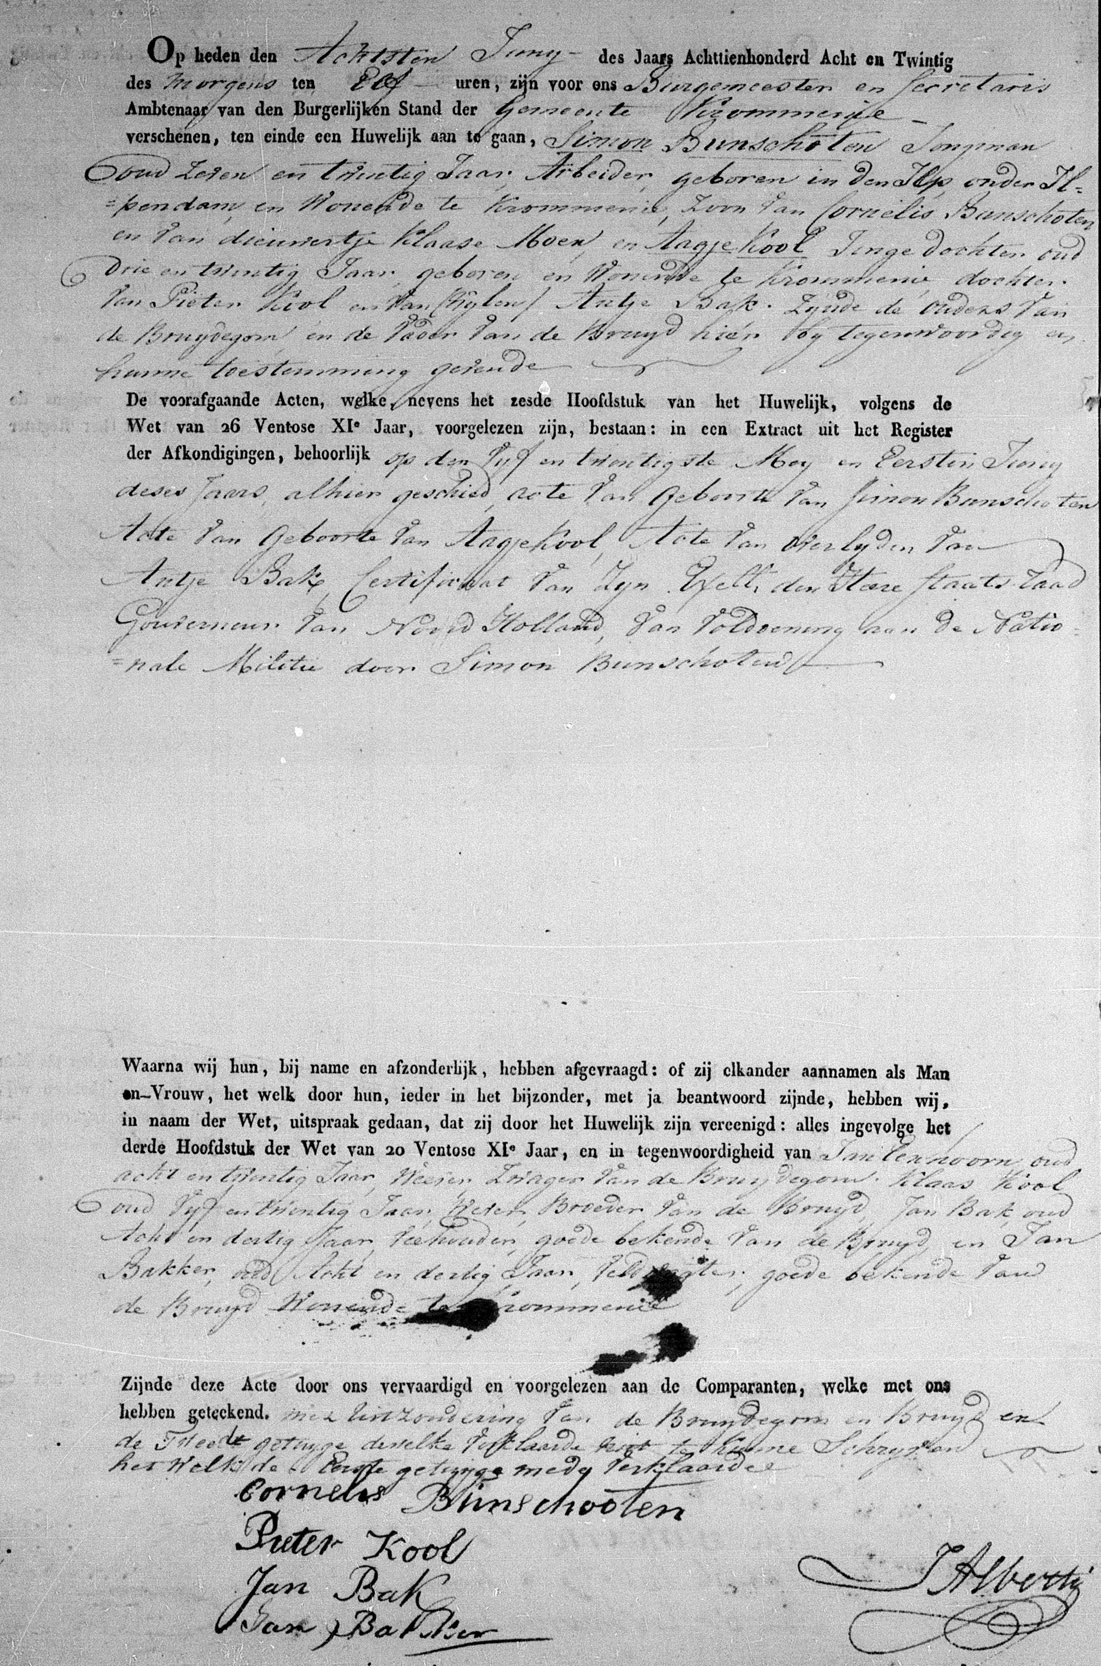 Op heden den Achtsten Juny - des Jaars Achttienhonderd Acht en Twintig
des morgens ten Elf - uren, zijn voor ons Burgemeester en Secretaris
Ambtenaar van den Burgerlijken Stand der Gemeente Krommenie -
verschenen, ten einde een Huwelijk aan te gaan, Simon Bunschoten Jongman
oud Zeven en twintig Jaar, Arbeider, geboren in den Ilp onder Il=
=pendam, en Wonende te Krommenie, Zoon van Cornelis Bunschoten
en van dieuwertje Klaase Moen, en Aagje Kool Jonge dochter oud
drie en twintig Jaar, geboren en Wonende te Krommenie, dochter
Van Pieter Kool en Van Wylen Antje Bak. Zynde de ouders Van
de Bruydegom, en de Vader Van de Bruyd hier by tegenwoordig en
hunne toestemming gevende
De voorafgaande Acten, welke, nevens het zesde Hoofdstuk van het Huwelijk, volgens de
Wet van 26 Ventose XIe Jaar, voorgelezen zijn, bestaan: in een Extract uit het Register
der Afkondigingen, behoorlijk op den Vyf en twintigste Mey en Eersten Juny
deses Jaars alhier geschied, acte Van Geboorte Van Simon Bunschoten
Acte Van Geboorte Van Aagje Kool, Acte Van overlyden Van
Antje Bak, Certificaat Van Zyn Excell. den Heere Staats Raad
Gouverneur Van Noord Holland, Van Voldoening aan de Natio=
=nale Militie door Simon Bunschoten
Waarna wij hun, bij name en afzonderlijk, hebben afgevraagd: of zij elkander aannamen als Man
en Vrouw, het welk door hun, ieder in het bijzonder, met ja beantwoord zijnde, hebben wij,
in naam der Wet, uitspraak gedaan, dat zij door het Huwelijk zijn vereenigd: alles ingevolge het
derde Hoofdstuk der Wet van 20 Ventose XIe Jaar, en in tegenwoordigheid van Jan oud
acht en twintig Jaar, Wever Zwager Van de Bruydegom. Klaas Kool
oud Vyf en twintig Jaar, Wever, Broeder Van de Bruyd, Jan Bak, oud
Acht en dertig Jaar, Veehouder, goede bekende Van de Bruyd, en Jan
Bakker, oud Acht en dertig Jaar, goede bekende Van
de Bruyd Wonende te Krommenie
Zijnde deze Acte door ons vervaardigd en voorgelezen aan de Comparanten, welke met ons
hebben geteekend. met Uitzondering Van de Bruydegom en Bruyd en
de Tweede getuyge dewelke Verklaarde niet te kunne Schryven
het Welk de Eerste getuyge mede Verklaarde
Cornelis Bunschooten
Pieter Kool
Jan Bak
Jan Bakker
J Alberti